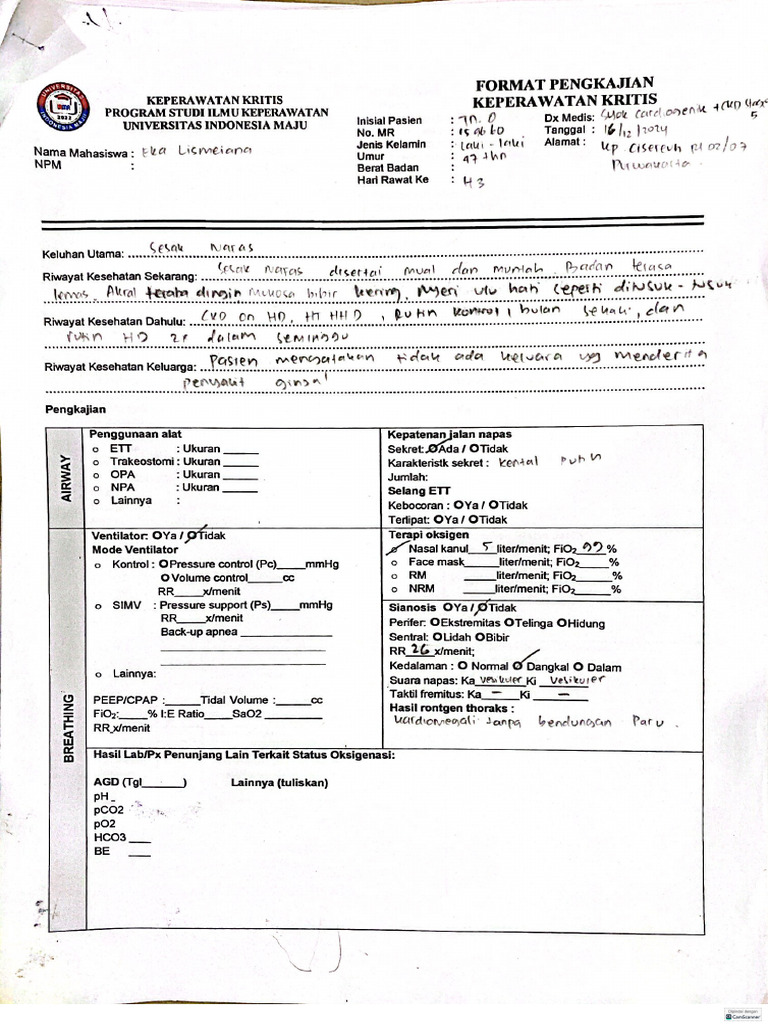 FORMAT PENGKAJIAN
KEPERAWATAN KRITIS
KEPERAWATAN KRITIS
PROGRAM STUDI ILMU KEPERAWATAN
UNIVERSITAS INDONESIA MAJU
UNIVERSITAS INDONESIA MAJU
2022
Nama Mahasiswa : Eka Lismeiana
NPM :
Inisial Pasien : Tn. O
No. MR : 15 06 60
Jenis Kelamin : Laki - laki
Umur : 47 thn
Berat Badan :
Hari Rawat Ke : H3
Dx Medis: Syok Cardiogenik + CKD Stage 5
Tanggal : 16/12/2024
Alamat : Kp Cisereuh Rt 02/07
Purwakarta
Keluhan Utama: Sesak Nafas
Riwayat Kesehatan Sekarang: Sesak Nafas disertai mual dan muntah. Badan terasa
lemas, Akral teraba dingin mukosa bibir kering, Nyeri ulu hati seperti ditusuk-tusuk
Riwayat Kesehatan Dahulu: CKD on HD, HT HHD, Rutin kontrol 1 bulan sekali, dan
rutin HD 2x dalam seminggu
Riwayat Kesehatan Keluarga: Pasien mengatakan tidak ada keluara yg menderita
penyakit ginjal
Pengkajian
AIRWAY
Penggunaan alat
o ETT : Ukuran
o Trakeostomi : Ukuran
o OPA : Ukuran
o NPA : Ukuran
o Lainnya :
Kepatenan jalan napas
Sekret: O Ada / O Tidak
Karakteristk sekret : kental Putih
Jumlah:
Selang ETT
Kebocoran : O Ya / O Tidak
Terlipat: O Ya / O Tidak
BREATHING
Ventilator: O Ya / O Tidak
Mode Ventilator
o Kontrol : O Pressure control (Pc)_____mmHg
O Volume control_____cc
RR_____x/menit
o SIMV : Pressure support (Ps)_____mmHg
RR_____x/menit
Back-up apnea
o Lainnya:
PEEP/CPAP :______Tidal Volume :______cc
FiO2:_____% I:E Ratio_____SaO2
RR x/menit
Terapi oksigen
o Nasal kanul 5 liter/menit; FiO2 99 %
o Face mask______liter/menit; FiO2_____%
o RM ______liter/menit; FiO2_____%
o NRM ______liter/menit; FiO2_____%
Sianosis O Ya / O Tidak
Perifer: O Ekstremitas O Telinga O Hidung
Sentral: O Lidah O Bibir
RR 26 x/menit;
Kedalaman : O Normal O Dangkal O Dalam
Suara napas: Ka vesikuler Ki vesikuler
Taktil fremitus: Ka – Ki –
Hasil rontgen thoraks :
Kardiomegali tanpa bendungan Paru.
Hasil Lab/Px Penunjang Lain Terkait Status Oksigenasi:
AGD (Tgl______) Lainnya (tuliskan)
pH _
pCO2
pO2
HCO3 ___
BE ___
CamScanner